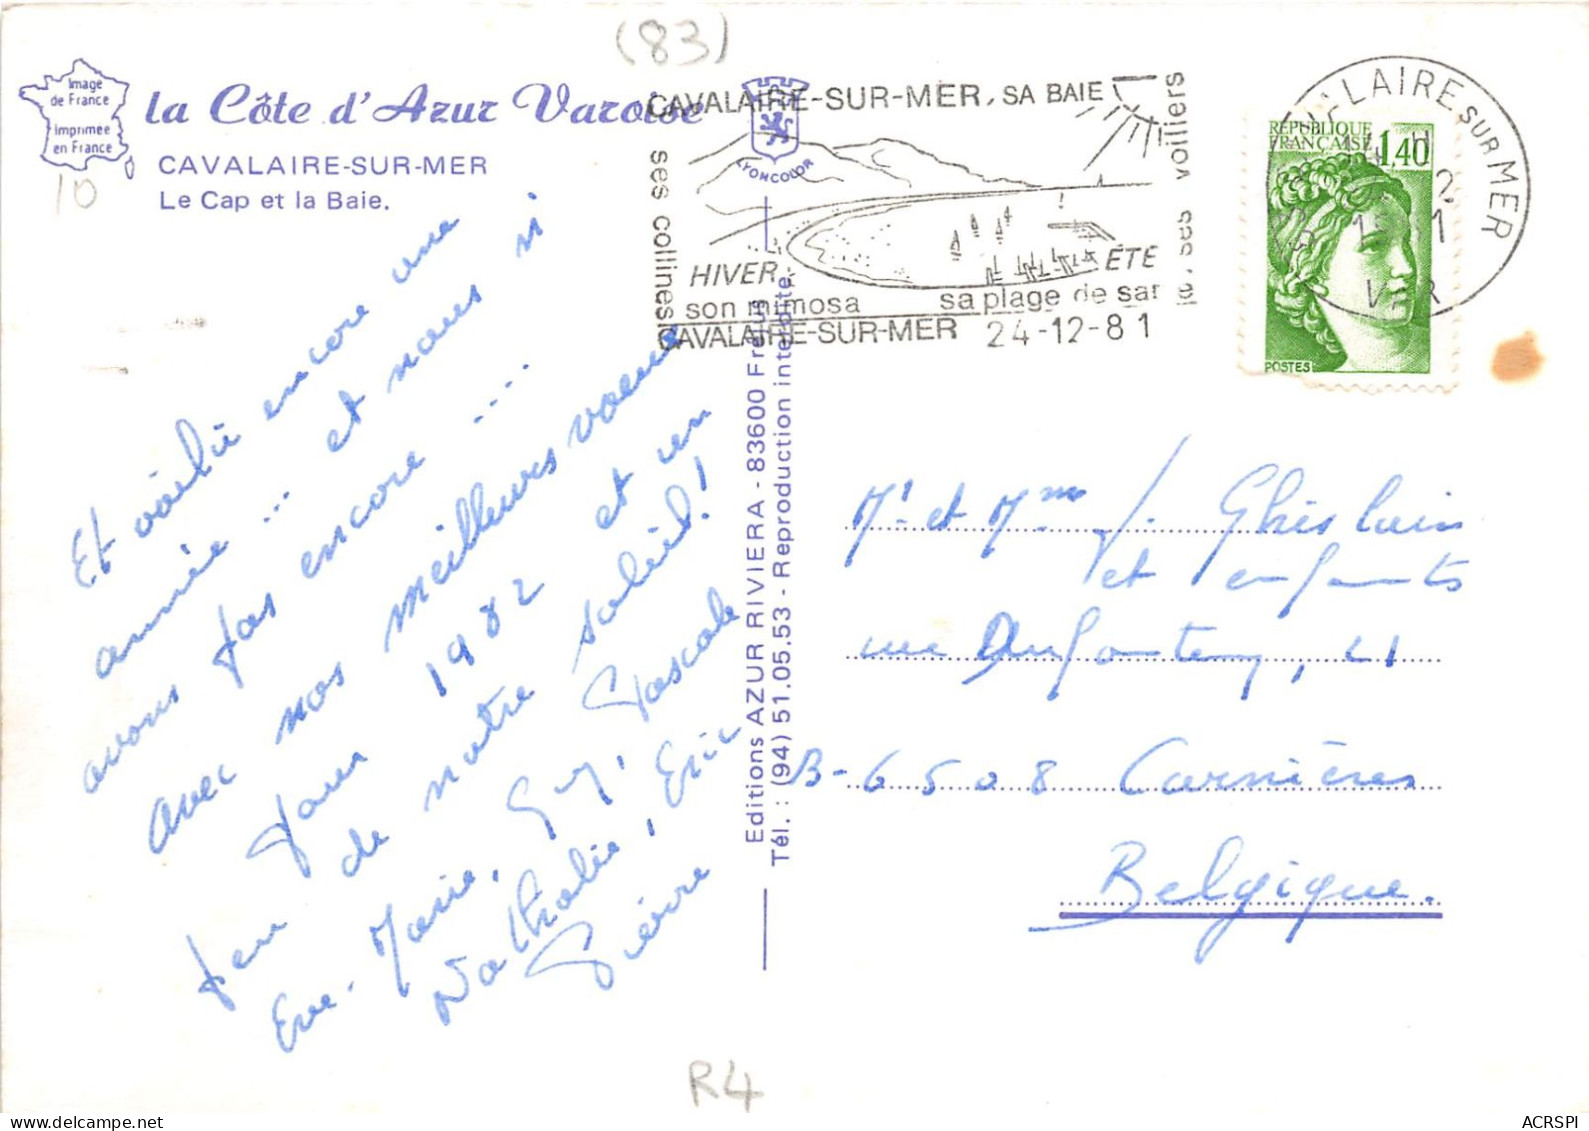 (83)
Image
de France
Imprimée
en France
10
la Côte d'Azur Varoise
CAVALAIRE-SUR-MER
Le Cap et la Baie.
CAVALAIRE-SUR-MER, SA BAIE
ses collines
ses voiliers
LYONCOLOR
HIVER,
son mimosa
ÉTÉ
sa plage de sable
CAVALAIRE-SUR-MER 24-12-81
LAIRE SUR MER
VAR
REPUBLIQUE
FRANÇAISE 1,40
POSTES
Et voilà encore une
année ... et nous ni
avons pas encore ...
avec nos meilleurs voeux
pour 1982 et un
peu de notre soleil!
Eve-Marie, Guy, Pascale
Nathalie, Eric
Pierre
Editions AZUR RIVIERA - 83600 Fréjus
Tél. : (94) 51.05.53 - Reproduction interdite
Mr et Mme J. Ghislain
et enfants
rue Dufonteny, 21
B-6508 Carnières
Belgique.
R4
ACRSPI